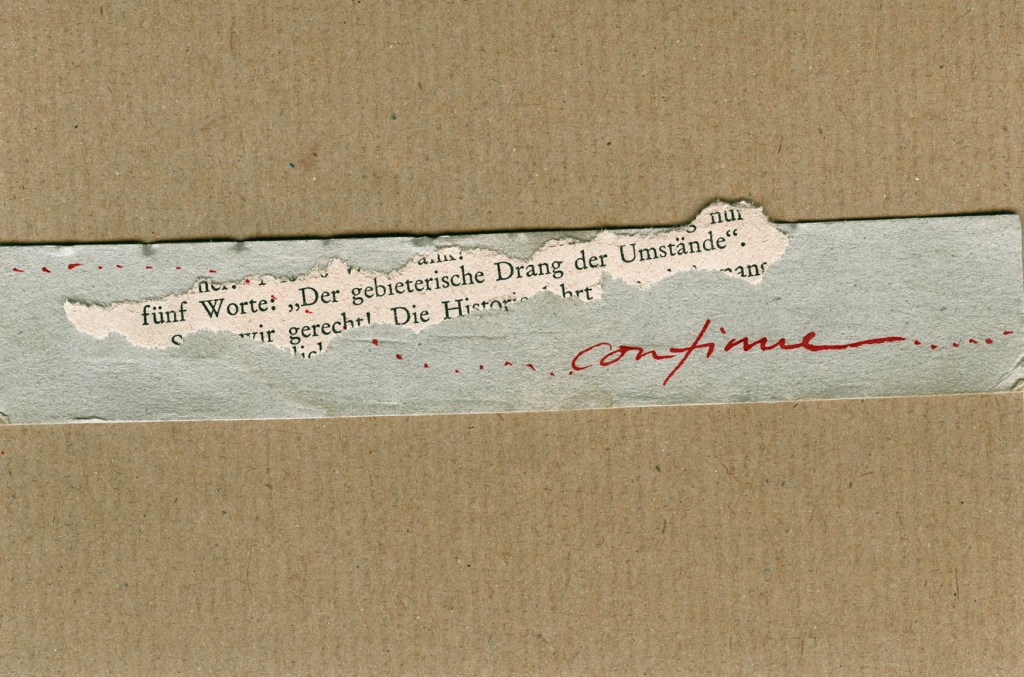 nur
fünf Worte: „Der gebieterische Drang der Umstände“.
wir gerecht! Die Historie
continue